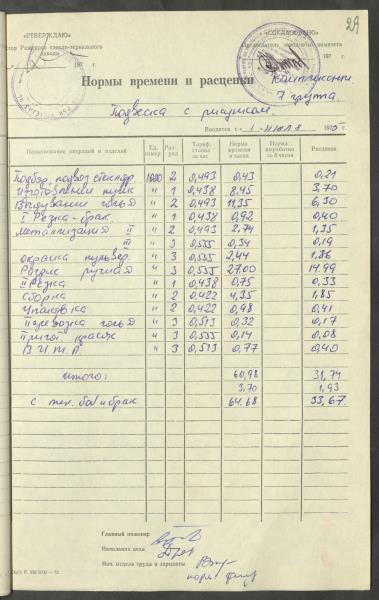 29
«УТВЕРЖДАЮ» «СОГЛАСОВАНО»
стекло-зеркального Председатель заводского комитета
завода
197 г. 197 г.
Нормы времени и расценки
7 группа.
Подвеска с рисунком.
Вводятся с « 1 - ИЮЛЯ 1975
Наименование операций и изделий Ед. измер Разряд Тариф. ставка за час Норма времени в часах Норма выработки за 8 часов Расценки
1000 2 0,493 0,43 0,21
" 1 0,438 8,45 3,70
" 2 0,493 11,35 6,30
I Резка-брак. " 1 0,438 0,92 0,40
Метализация II " 2 0,493 2,74 1,35
III " 3 0,555 0,34 0,19
окраска пульвер. " 3 0,555 2,44 1,36
Роспис ручная " 3 0,555 27.00 14.99
II Резка " 1 0,438 0,75 0,33
Сборка " 2 0,422 4,35 1,85
Упаковка " 2 0,422 0,98 0,41
Перевозка " 3 0,513 0,32 0,17
Пригот. красок " 3 0,555 0,14 0,08
" 3 0,513 0.77 0,40
Итого: 60,98 31,74
3,70 1,93
с тех. бой и брак 64.68 33,67.
Главный инженер
Начальник цеха
Нач. отдела труда и зарплаты